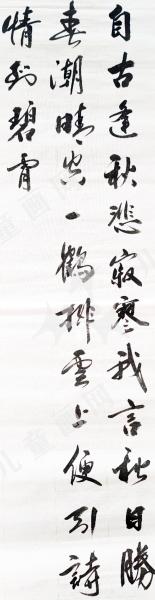 自古逢秋悲寂寥我言秋日勝
春潮晴空一鶴排雲上便引詩
情到碧霄